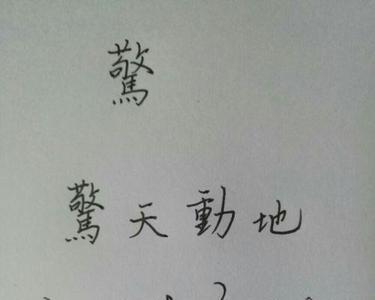 驚
驚天動地